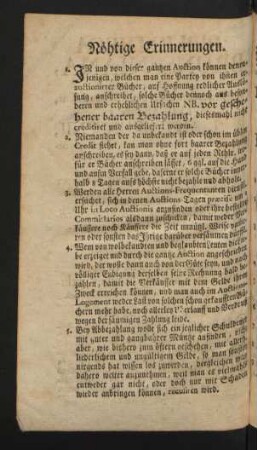 Nöhtige Erinnerungen.
1. IN und von dieser gantzen Auction können denen-
jenigen, welchen man eine Partey von ihnen
auctionirter Bücher, auf Hoffnung redlicher Auslö-
sung, anschreibet, solche Bücher dennoch aus beson-
deren und erheblichen Ursachen NB. vor gesche-
hener baaren Bezahlung, diesesmahl nicht
creditiret und ausgeliefert werden.
2. Niemanden der da unbekandt ist oder schon im üblen
Credit stehet, kan man ohne fort baare Bezahlung
anschreiben, es sey dann, daß er auf jeden Rthlr.
für er Bücher anschreiben lässet, 6 ggl. auf die Hand
und aufm Verfall gebe, daferne er solche Bücher inner-
halb 8 Tagen aufs höhste nicht bezahle und abhohle.
3. Werden alle Herren Auctions-Frequentanten
ersuchet, sich in denen Auctions-Tagen præcise um
Uhr in Loco Auctionis anzufinden oder ihre bestellte
Commissarios alsdann zuschicken, damit weder Ver-
käuffere noch Käuffere die Zeit unnütz, Weise
oder sonsten das Ihrige darüber versäumen
4. Wem von wolbekandten und beglaubten Leuten
erzeiget und durch die gantze Auction angeschrieben
wird, der wolle dann auch von der Güte seyn, und nach
völliger Endigung derselben seine Rechnung bald be-
zahlen, damit die Verkäuffer mit dem Gelde ihren
Zweck erreichen können, und man auch im Auctions-
Logement weder Last von solchen schon gekaufften Bü-
chern mehr habe, noch allerley erlauff und Verdruß
wegen der säumigen Zahlung leide.
5. Bey Abbezahlung wolle sich ein jeglicher Schuldener
mit guter und gangbahrer Müntze anfinden,
aber, wie bishero zum öftern geschehen, mit aller-
liederlichem und ungültigem Gelde, so man
nirgends hat wissen los zuwerden, dergleichen man
dahero weiter anzunehmen, weil man es vielmahls
entweder gar nicht, oder doch nur mit Schaden
wieder anbringen können, wird.